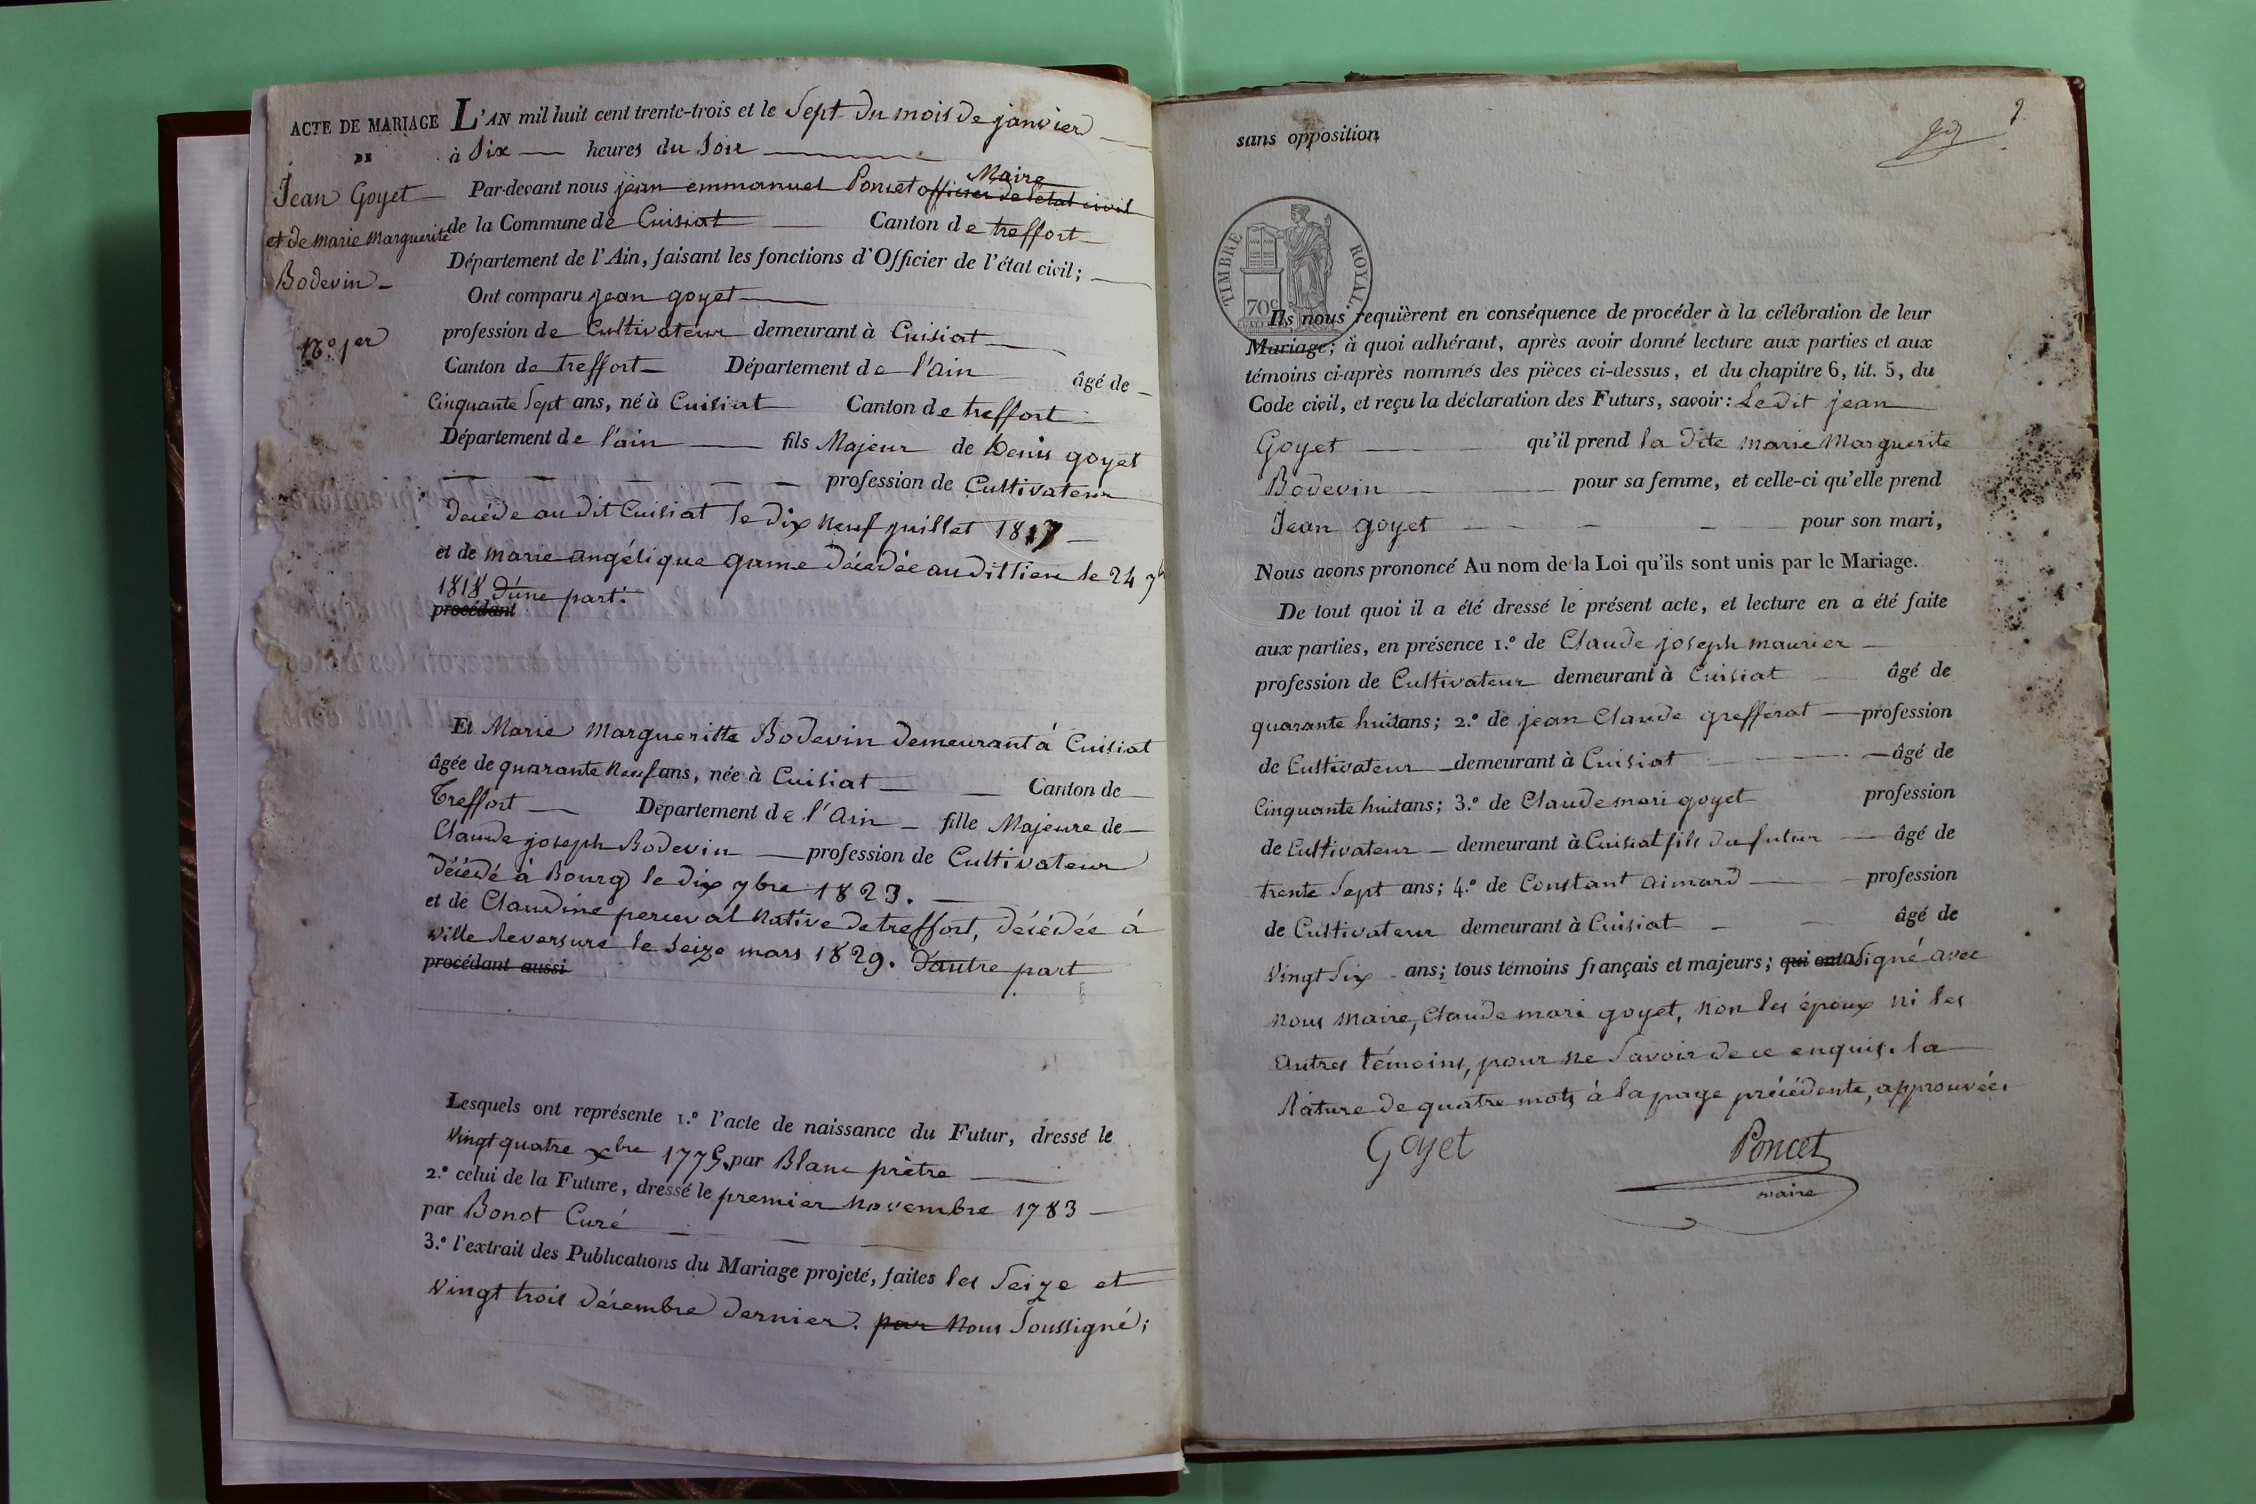 ACTE DE MARIAGE
DE
Jean Goyet
et de marie Marguerite
Bodevin
N.º 1er
L'AN mil huit cent trente-trois et le Sept du mois de janvier
à Six heures du Soir
Maire
Par-devant nous jean emmanuel Poncet officier de l'état civil
de la Commune de Cuisiat Canton de treffort
Département de l'Ain, faisant les fonctions d'Officier de l'état civil;
Ont comparu jean goyet
profession de Cultivateur demeurant à Cuisiat
Canton de treffort Département de l'ain âgé de
Cinquante Sept ans, né à Cuisiat Canton de treffort
Département de l'ain fils Majeur de Denis goyet
profession de Cultivateur
décédé au dit Cuisiat le dix Neuf juillet 1817
et de marie angélique game décédée au dit lieu le 24 7br
1818 d'une part.
procédant
Et Marie Margueritte Bodevin demeurant à Cuisiat
âgée de quarante Neuf ans, née à Cuisiat Canton de
Treffort Département de l'Ain fille Majeure de
Claude joseph Bodevin profession de Cultivateur
décédé à Bourg le dix 7bre 1823.
et de Claudine perceval Native de treffort, décédée à
Ville Reversure le Seize mars 1829. d'autre part
procédant aussi
Lesquels ont représente 1.º l'acte de naissance du Futur, dressé le
Vingt quatre xbre 1775, par Blanc prêtre
2.º celui de la Future, dressé le premier Novembre 1783
par Bonot Curé
3.º l'extrait des Publications du Mariage projeté, faites les Seize et
Vingt trois décembre dernier. par Nous Soussigné;
sans opposition
TIMBRE ROYAL
70c
Ils nous requièrent en conséquence de procéder à la célébration de leur
Mariage; à quoi adhérant, après avoir donné lecture aux parties et aux
témoins ci-après nommés des pièces ci-dessus, et du chapitre 6, tit. 5, du
Code civil, et reçu la déclaration des Futurs, savoir: Le dit jean
Goyet qu'il prend la dite marie Marguerite
Bodevin pour sa femme, et celle-ci qu'elle prend
Jean goyet pour son mari,
Nous avons prononcé Au nom de la Loi qu'ils sont unis par le Mariage.
De tout quoi il a été dressé le présent acte, et lecture en a été faite
aux parties, en présence 1.º de Claude joseph maurier
profession de Cultivateur demeurant à Cuisiat âgé de
quarante huit ans; 2.º de jean Claude grefferat profession
de Cultivateur demeurant à Cuisiat âgé de
Cinquante huit ans; 3.º de Claude mari goyet profession
de Cultivateur demeurant à Cuisiat fils du futur âgé de
trente Sept ans; 4.º de Constant aimard profession
de Cultivateur demeurant à Cuisiat âgé de
Vingt Six ans; tous témoins français et majeurs; qui ont a Signé avec
Nous Maire, Claude mari goyet, Non les époux Ni les
Autres témoins, pour Ne Savoir de ce enquis. la
Rature de quatre mots à la page précédente, approuvée.
Goyet
Poncet
maire